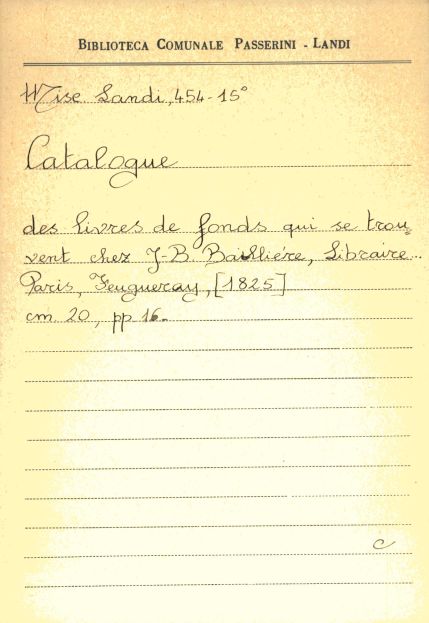 BIBLIOTECA COMUNALE PASSERINI - LANDI
Mise Landi, 454-15°
Catalogue
des livres de fonds qui se trou
vent chez J-B. Baillière, Libraire..
Paris, Feugueray, [1825]
cm. 20, pp 16.
c